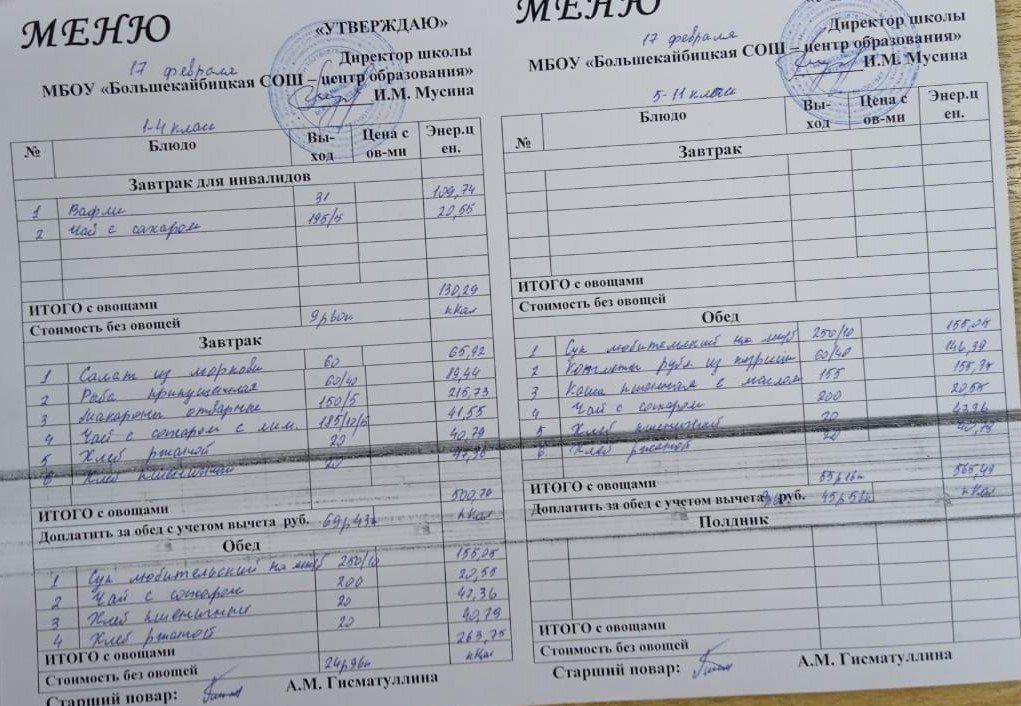 МЕНЮ
«УТВЕРЖДАЮ»
17 февраля
Директор школы
МБОУ «Большекайбицкая СОШ – центр образования»
И.М. Мусина
1-4 класс
№ Блюдо Вы-ход Цена с ов-ми Энер.ц ен.
Завтрак для инвалидов
1 Вафли 31 109,74
2 Чай с сахаром 195/5 20,55
ИТОГО с овощами 130,29
Стоимость без овощей 9р60к ккал
Завтрак
1 Салат из моркови 60 65,92
2 Рыба припущенная 60/40 89,44
3 Макароны отварные 150/5 215,73
4 Чай с сахаром с лим. 185/10/5 41,55
5 Хлеб ржаной 20 40,79
6 Хлеб пшеничный 20 47,36
ИТОГО с овощами 500,79
Доплатить за обед с учетом вычета руб. 69р43к ккал
Обед
1 Суп любительский на м/б 250/10 155,05
2 Чай с сахаром 200 20,55
3 Хлеб пшеничный 20 47,36
4 Хлеб ржаной 20 40,79
ИТОГО с овощами 263,75
Стоимость без овощей 24р96к ккал
Старший повар: А.М. Гисматуллина
МЕНЮ
17 февраля
Директор школы
МБОУ «Большекайбицкая СОШ – центр образования»
И.М. Мусина
5-11 классы
№ Блюдо Вы-ход Цена с ов-ми Энер.ц ен.
Завтрак
ИТОГО с овощами
Стоимость без овощей
Обед
1 Суп любительский на м/б 250/10 155,05
2 Котлеты рубл из курицы 60/40 146,39
3 Каша пшенная с маслом 155
4 Чай с сахаром 200 20,55
5 Хлеб пшеничный 20 47,36
6 Хлеб ржаной 20 40,79
ИТОГО с овощами 565,49
Доплатить за обед с учетом вычета руб. 45р56к ккал
Полдник
ИТОГО с овощами
Стоимость без овощей
Старший повар: А.М. Гисматуллина